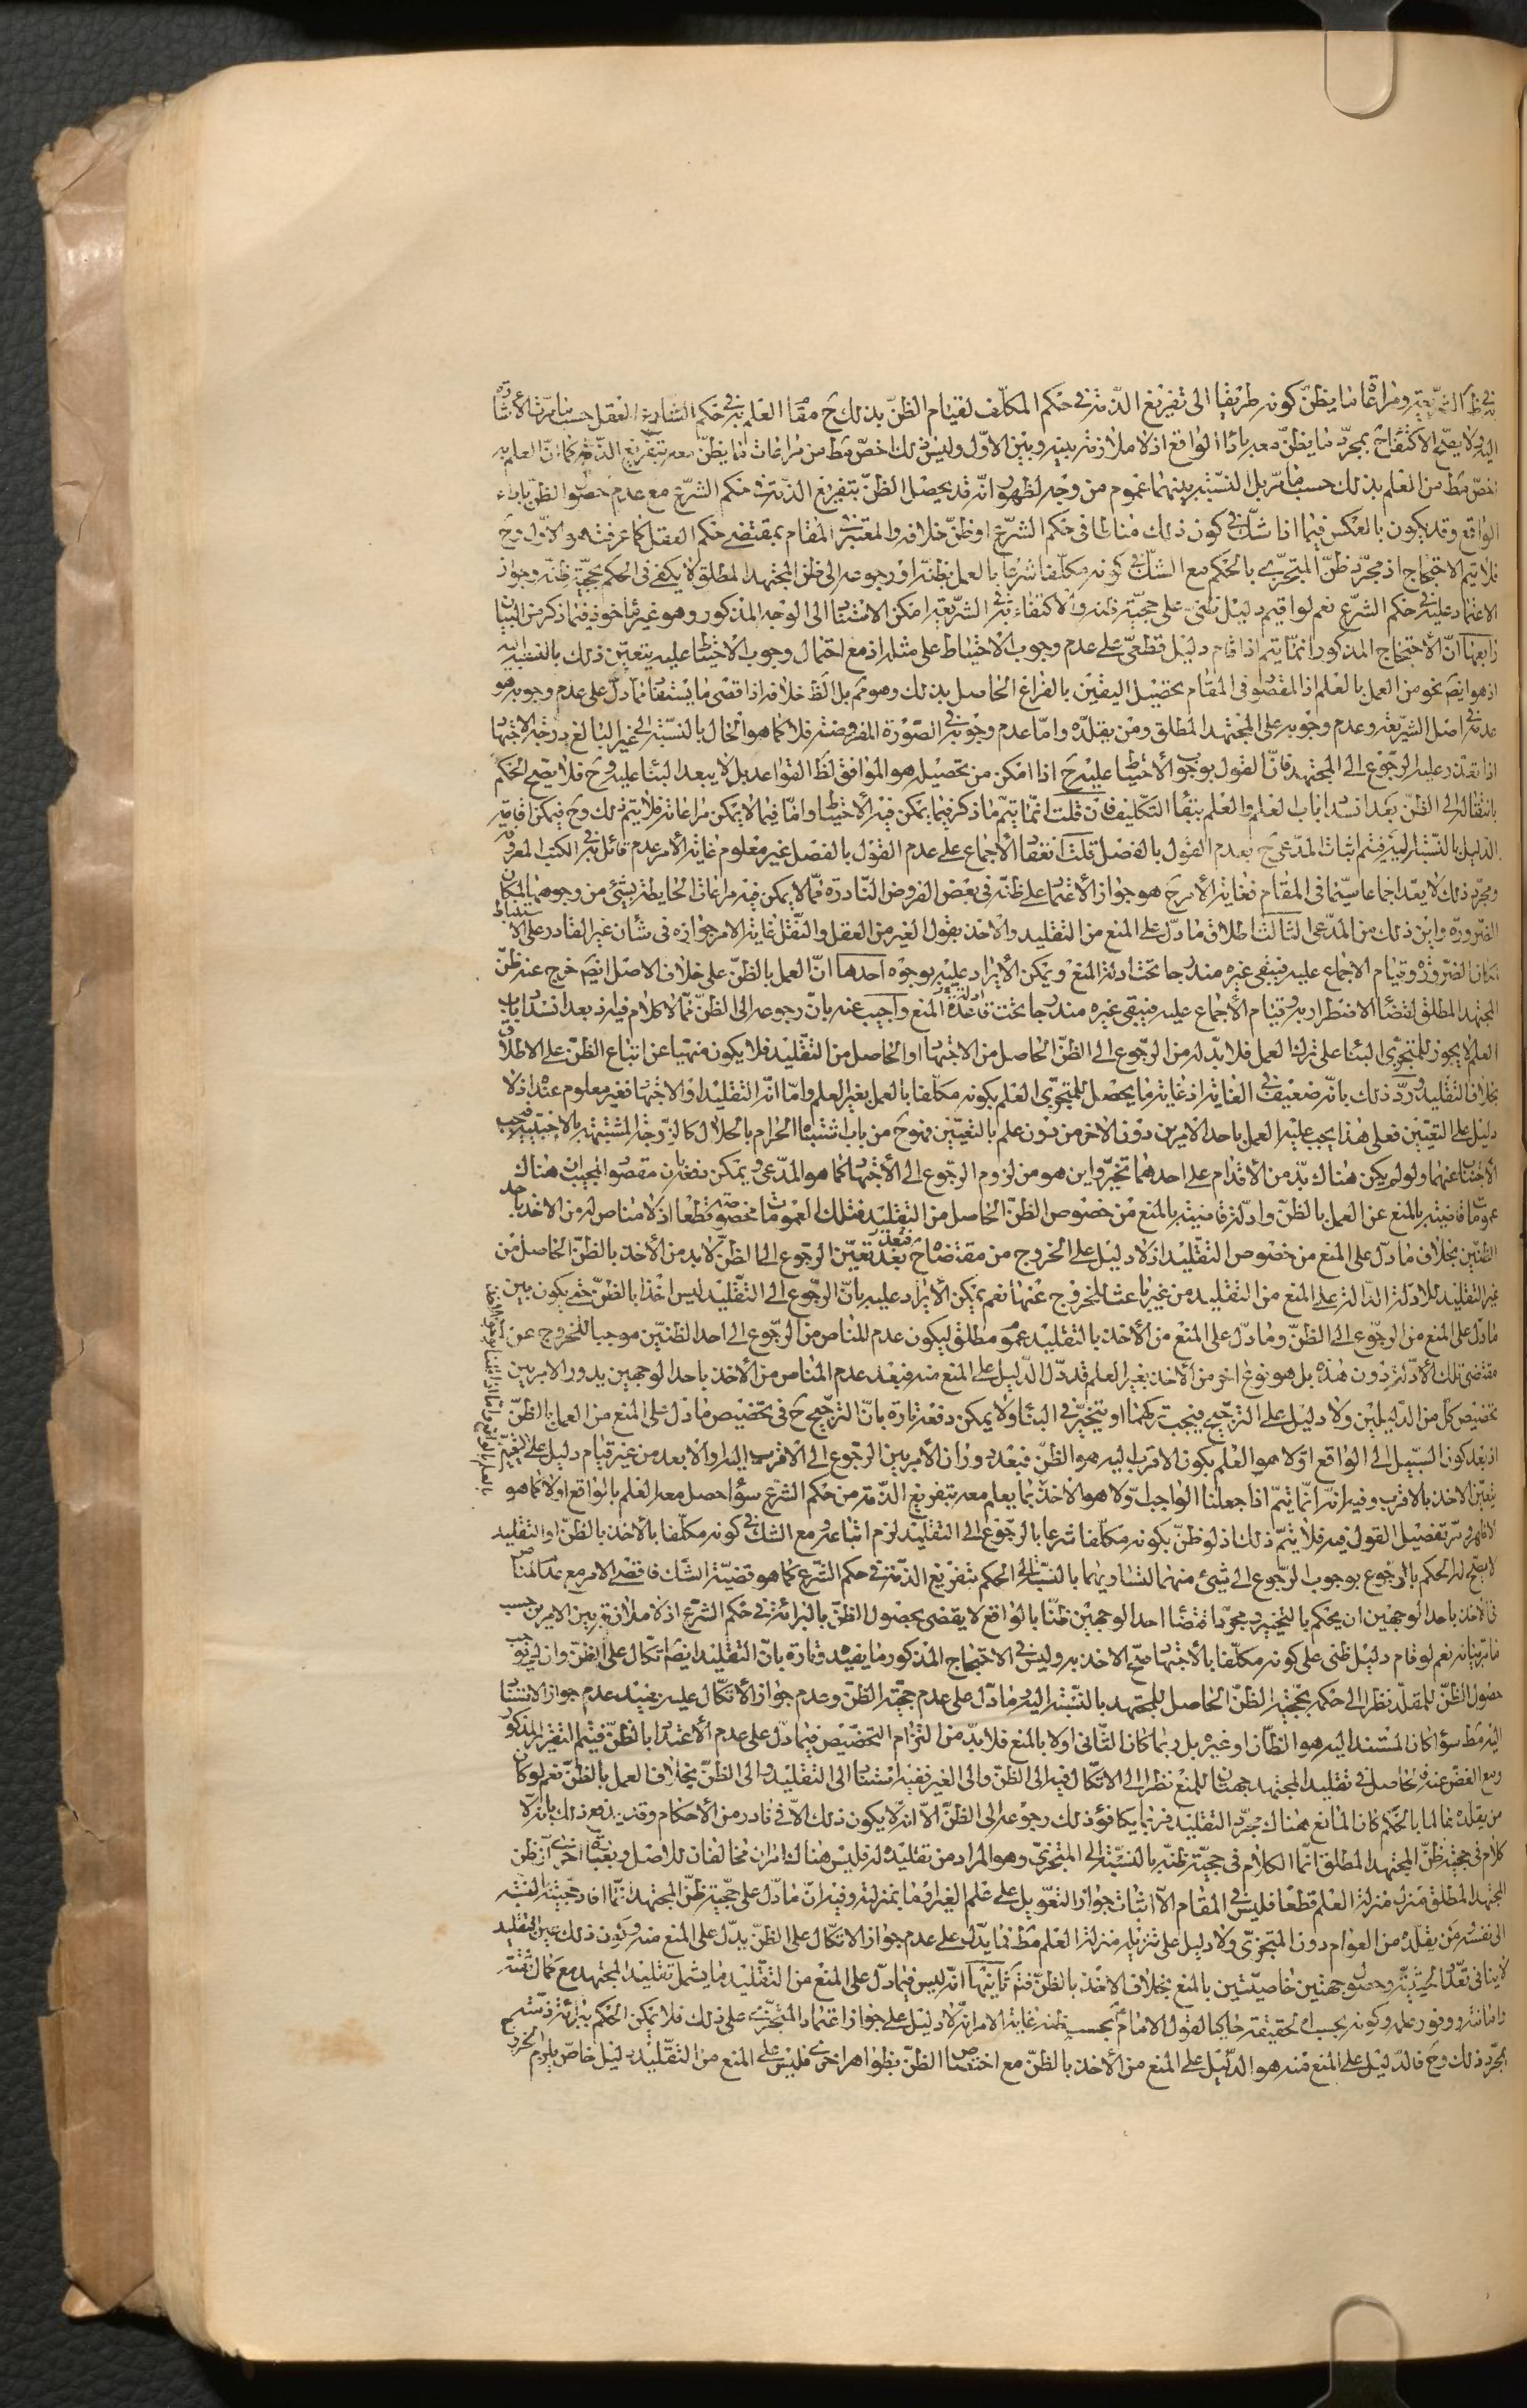 في ظ الشريعة ومراعاة ما يظنّ كونه طريقا الى تفريغ الذّمة في حكم المكلّف لقيام الظنّ بذلك ح مقا العلم به في حكم الشارع العقل حسبما مرّت الأشارة
اليه ولا يصحّ الاكتفاء ح بمجرّد ما يظنّ معه باداء الواقع اذ لا ملازمة بينه وبين الاوّل وليس ذلك اخصّ مط من مراعات ما يظنّ معه بتفريغ الذّمة كما انّ العلم به
اخصّ مط من العلم بذلك حسب ما مرّ بل النسبة بينهما عموم من وجه لظهور انّه قد يحصل الظنّ بتفريغ الذّمة في حكم الشرع مع عدم حصول الظن باداء
الواقع وقد يكون بالعكس فيما اذا شكّ في كون ذلك مناطا في حكم الشرع او ظنّ خلافه والمعتبر في المقام بمقتضى حكم العقل كما عرفت هو الاوّل وح
فلا يتم الاحتجاج اذ مجرّد ظنّ المتجزّي بالحكم مع الشكّ في كونه مكلّفا شرعا بالعمل بظنّه او رجوعه الى ظن المجتهد المطلق لا يكفى فى الحكم بحجيّة ظنّه وجواز
الاعتماد عليه في حكم الشرع نعم لو اقيم دليل ظنّى على حجيّة ظنه والاكتفاء به في الشريعة امكن الاستناد الى الوجه المذكور وهو غير ماخوذ فيما ذكر من البيان
رابعها انّ الاحتجاج المذكور انما يتم اذا قام دليل قطعى على عدم وجوب الاحتياط على مثله اذ مع احتمال وجوب الاحتياط عليه يتعين ذلك بالنسبة اليه
اذ هو ايضَ نحو من العمل بالعلم اذ المقصود فى المقام تحصيل اليقين بالفراغ الحاصل بذلك وهو مم بل الظ خلافه اذ اقصى ما يستفاد مما دلّ على عدم وجوبه هو
عدمه في اصل الشريعة وعدم وجوبه على المجتهد المطلق ومن يقلّده وامّا عدم وجوبه في الصّورة المفروضة فلا كما هو الحال بالنسبة الى غير البالغ درجة الاجتهاد
اذا تعذر عليه الرّجوع الى المجتهد فانّ القول بوجوب الأحتياط عليه ح اذا امكن من تحصيله هو الموافق لظ القواعد بل لا يبعد البناء عليه وح فلا يصح الحكم
بانتقاله الى الظنّ بعد انسداد باب العلم والعلم ببقاء التكليف فان قلت انّما يتمّ ما ذكر فيما يمكن فيه الأحتياط وامّا فيما لا يمكن مراعاته فلا يتم ذلك وح فيمكن اقامة
الدليل بالنّسبة اليه فيتم اثبات المدّعى ح بعدم القول بالفصل قلت انعقاد الأجماع على عدم القول بالفصل غير معلوم غاية الأمر عدم قائل به في الكتب المعروفة
ومجرّد ذلك لا يعدّ اجماعا سيّما فى المقام فغاية الأمر ح هو جواز الأعتماد على ظنّه فى بعض الفروض النادرة ممّا لا يمكن فيه مراعاة الحايطة بشئ من وجوهها لمكان
الضّرورة واين ذلك من المدّعى الثالث اطلاق ما دلّ على المنع من التقليد والاخذ بقول الغير من العقل والنّقل غاية الامر جوازه فى شأن غير القادر على الاستنباط
لمكان الضّرورة وقيام الاجماع عليه فيبقى غيره مندرجا تحت ادلة المنع ويمكن الأيراد عليه بوجوه احدها انّ العمل بالظنّ على خلاف الاصل ايضَ خرج عنه ظنّ
المجتهد المطلق لقضاء الاضطرار به وقيام الأجماع عليه فيبقى غيره مندرجا تحت قاعدة المنع واجيب عنه بانّ رجوعه الى الظنّ ممّا لا كلام فيه اذ بعد انسداد باب
العلم لا يجوز للمتجزّى البناء على ترك العمل فلا بدّ له من الرّجوع الى الظنّ الحاصل من الاجتهاد او الحاصل من التقليد فلا يكون منهيا عن اتباع الظنّ على الاطلاق
بخلاف التقليد وردّ ذلك بانّه ضعيف في الغاية اذ غاية ما يحصل للمتجزّى العلم بكونه مكلّفا بالعمل بغير العلم وامّا انّه التقليد او الاجتهاد فغير معلوم عنده اذ لا
دليل على التعيين فعلى هذا يجب عليه العمل باحد الامرين دون الاخر من دون علم بالتعيّين فهو ح من باب اشتباه الحرام بالحلال كالزوجة المشتبهة بالاجنبية فيجب
الأجتناب عنهما ولو لم يكن هناك بدّ من الأقدام على احدهما تخيّر واين هو من لزوم الرجوع الى الأجتهاد كما هو المدّعى ويمكن دفعه بان مقصود المجيب ان هناك
عمومات قاضية بالمنع عن العمل بالظنّ وادلة قاضية بالمنع من خصوص الظنّ الحاصل من التقليد فتلك العمومات مخصّصة قطعا اذ لا مناص له من الاخذ باحد
الظنّين بخلاف ما دلّ على المنع من خصوص التقليد اذ لا دليل على الخروج من مقتضاه ح فبعد تعيّن الرجوع الى الظنّ لا بد من الأخذ بالظنّ الحاصل من
غير التقليد للادلّة الدّالة على المنع من التقليد من غير باعث للخروج عنها نعم يمكن الأيراد عليه بانّ الرجوع الى التقليد ليس اخذا بالظنّ حتى يكون بين
ما دلّ على المنع من الرجوع الى الظنّ وما دلّ على المنع من الأخذ بالتقليد عموم مطلق ليكون عدم المناص من الرّجوع الى احد الظنيّن موجبا للخروج عن
مقتضى تلك الأدلّة دون هذه بل هو نوع اخر من الأخذ بغير العلم قد دلّ الدّليل على المنع منه فبعد عدم المناص من الأخذ باحد الوجهين يدور الامر بين
تخصيص كل من الدّليلين ولا دليل على الترجيح فيجب تركهما او يتخيّر في البناء ولا يمكن دفعه تارة بانّ الترجيح ح فى تخصيص ما دلّ على المنع من العمل بالظنّ
اذ بعد كون السبيل الى الواقع اوّلا هو العلم يكون الاقرب اليه هو الظنّ فبعد دوران الأمر بين الرجوع الى الاقرب اليه والأبعد من غير قيام دليل على التعيّن
يتعيّن الاخذ بالاقرب وفيه انّه انّما يتمّ اذا جعلنا الواجب اوّلا هو الاخذ بما يعلم معه بتفريغ الذّمة من حكم الشرع سواء حصل معه العلم بالواقع او لا كما هو
الاظهر ومرّ تفصيل القول فيه فلا يتمّ ذلك اذ لو ظنّ بكونه مكلّفا شرعا بالرّجوع الى التقليد لزم اتباعه ومع الشك في كونه مكلّفا بالأخذ بالظنّ او التقليد
لا يصح له الحكم بالرجوع بوجوب الرّجوع الى شئ منهما لتساويهما بالنّسبة الى الحكم بتفريغ الذّمة في حكم الشرع كما هو قضيّة الشّك فاقصى الامر مع عدم المناص
فى الأخذ باحد الوجهين ان يحكم بالتخيير ومجرّد اقتضاء احد الوجهين ظنّا بالواقع لا يقضى بحصول الظن بالبرائة في حكم الشرع اذ لا ملازمة بين الامرين حسب
ما مرّ بيانه نعم لو قام دليل ظنى على كونه مكلّفا بالأجتهاد صحّ الاخذ به وليس في الاحتجاج المذكور ما يفيده وتارة بانّ التقليد ايضَ اتكال على الظنّ وان لم يوجب
حصول الظنّ للمقلّد نظرا الى حكمه بحجّية الظنّ الحاصل للمجتهد بالنّسبة اليه وما دلّ على عدم حجّية الظنّ وعدم جواز الأتّكال عليه يفيد عدم جواز الاستناد
اليه مط سواء كان المستند اليه هو الظّان او غيره بل ربما كان الثّانى اولا بالمنع فلا بدّ من التزام التخصيص فيما دلّ على عدم الأعتداد بالظنّ فيتم التقرير المذكور
ومع الغضّ عنه فالحاصل في تقليد المجتهد جهتان للمنع نظرا الى الاتّكال فيه الى الظنّ والى الغير ففيه استناد الى التقليد والى الظنّ بخلاف العمل بالظنّ نعم لو كان
من يقلده عالما بالحكم كان المانع هناك مجرّد التقليد فربما يكافؤ ذلك رجوعه الى الظنّ الّا انّه لا يكون ذلك الّا في نادر من الأحكام وقد يدفع ذلك بانّه لا
كلام فى حجية ظنّ المجتهد المطلق انّما الكلام فى حجيّة ظنّه بالنّسبة الى المتجزّى وهو المراد من تقليده له فليس هناك امران مخالفان للاصل وبعبارة اخرى ان ظن
المجتهد المطلق منزل منزلة العلم قطعا فليس في المقام الّا اثبات جواز التعويل على علم الغير او ما بمنزلته وفيه انّ ما دلّ على حجّية ظنّ المجتهد انّما افاد حجّيته بالنسبة
الى نفسه ومن يقلّده من العوام دون المتجزّى ولا دليل على تنزيله منزلة العلم مط فما يدلّ على عدم جواز الاتكال على الظنّ يدّل على المنع منه وكون ذلك عين التقليد
لا ينافى تعدّد الحيثيّة وحصول جهتين خاصيّتين بالمنع بخلاف الاخذ بالظنّ فتم ثانيها انّه ليس فيما دلّ على المنع من التقليد ما يشمل تقليد المجتهد مع كمال ثقته
وامانته ووفور علمه وكونه بحسب الحقيقة حاكيا لقول الامام بحسب ظنه غاية الامر انّه لا دليل على جواز اعتماد المتجزّى على ذلك فلا يمكن الحكم ببرائة ذمّته ح
بمجرّد ذلك وح فالدّليل على المنع منه هو الدّليل على المنع من الأخذ بالظنّ مع اختصاص الظنّ بظواهر اخرى فليس على المنع من التقليد دليل خاصّ يلزم الخروج